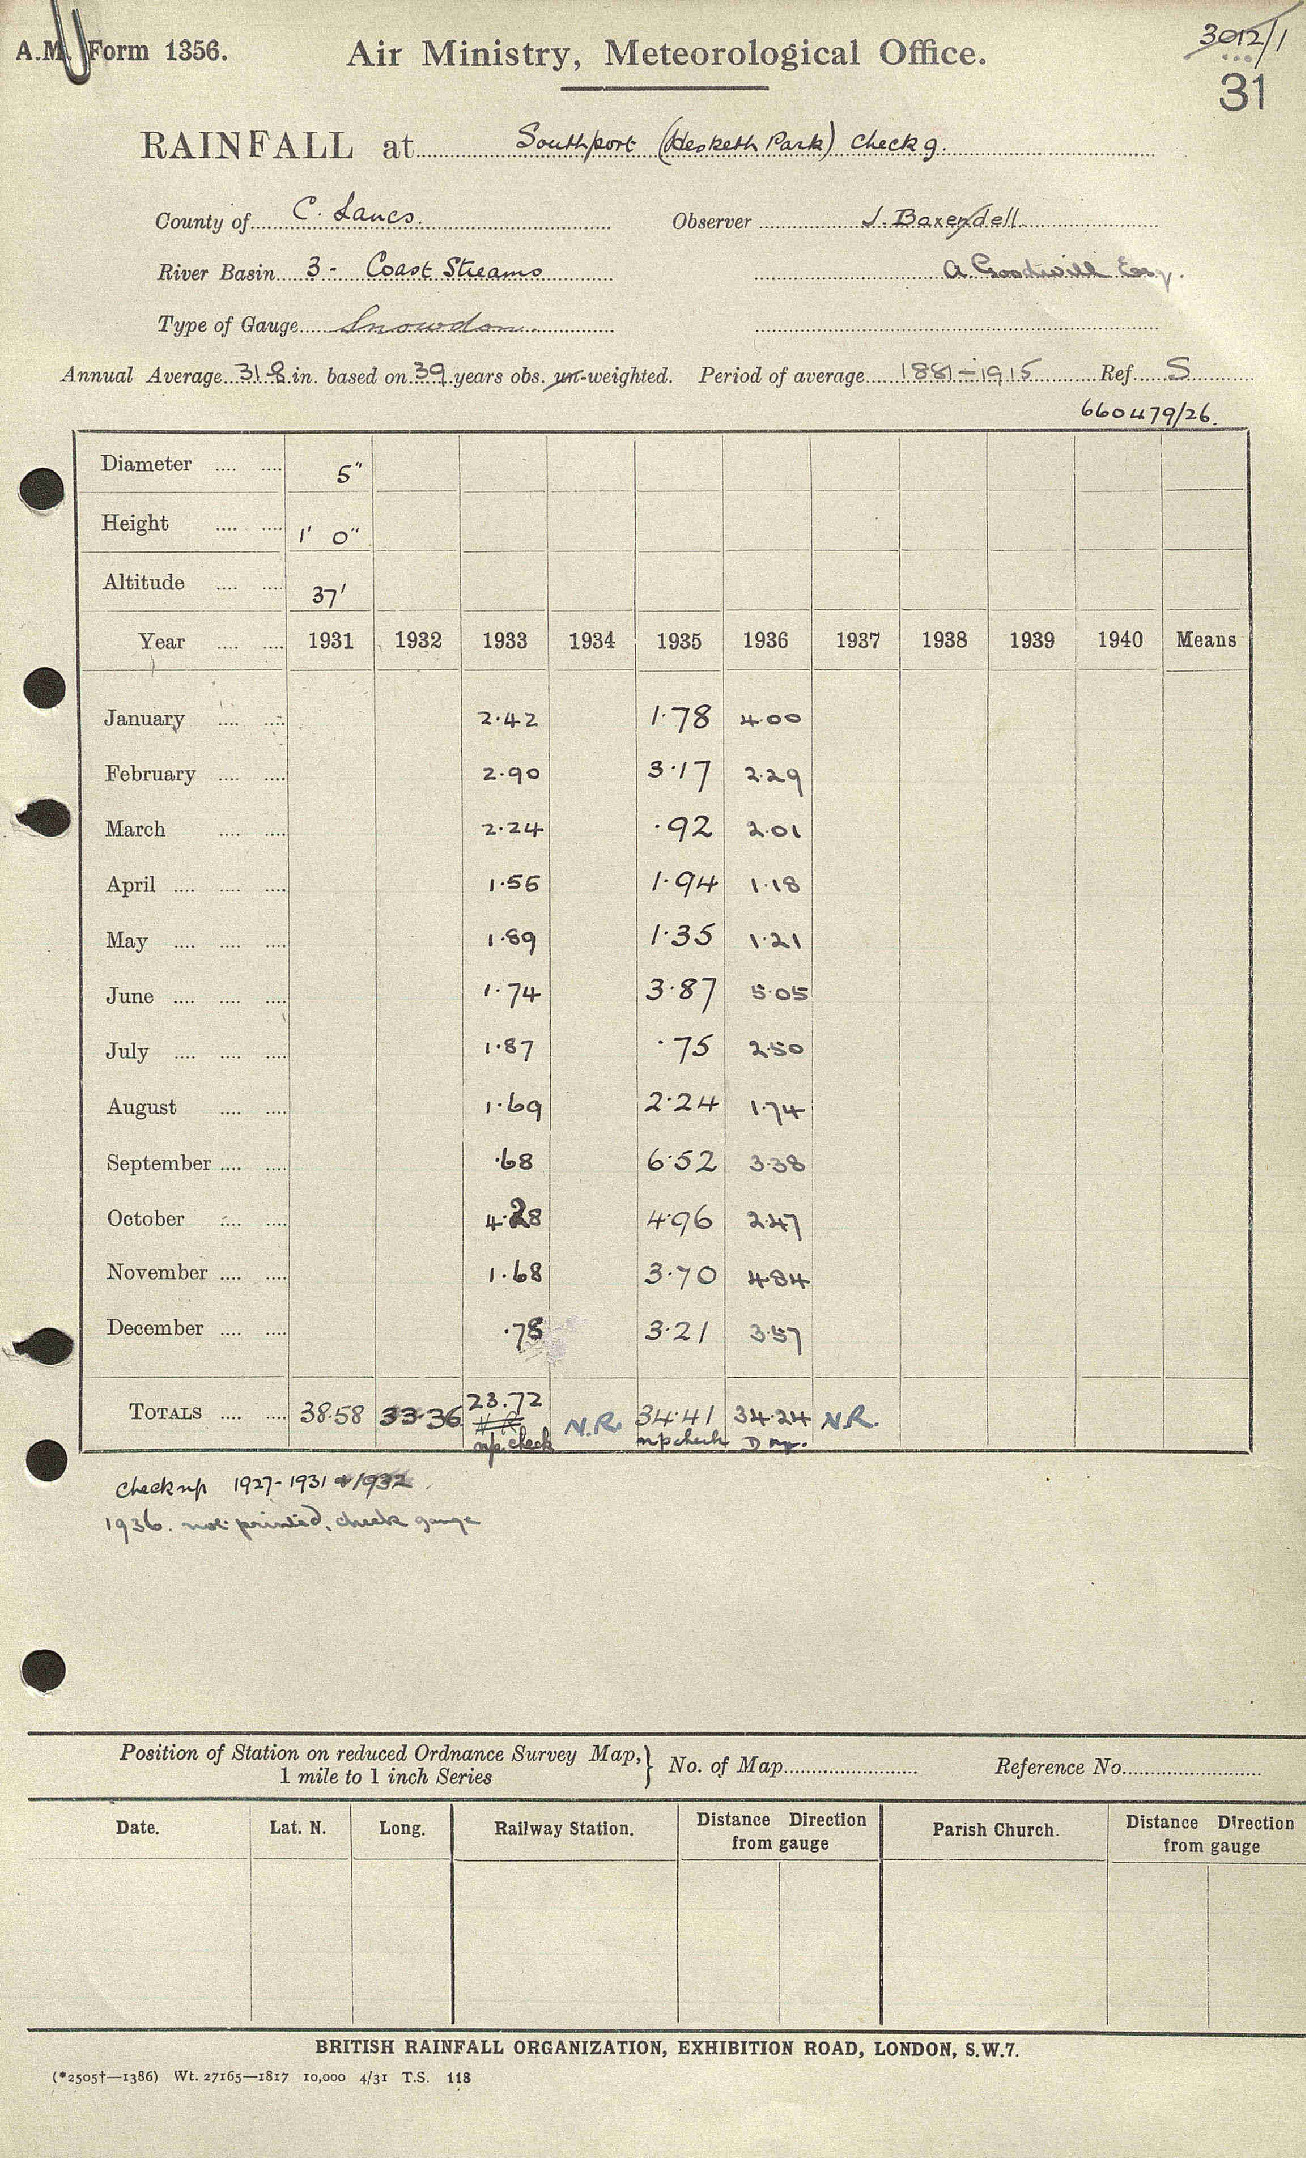 A.M. Form 1356. Air Ministry, Meteorological Office. 3012/1
31
RAINFALL at Southport (Hesketh Park) Check g.
County of C. Lancs. Observer J. Baxendell
River Basin 3 - Coast Streams A Goodwill Esq.
Type of Gauge Snowdon
Annual Average 31.8 in. based on 39 years obs. un-weighted. Period of average 1881-1915 Ref S
660479/26.
Diameter .... .... 5"
Height .... .... 1' 0"
Altitude .... .... 37'
Year .... .... 1931 1932 1933 1934 1935 1936 1937 1938 1939 1940 Means
January .... .... 2.42 1.78 4.00
February .... .... 2.90 3.17 2.29
March .... .... 2.24 .92 2.01
April .... .... .... 1.56 1.94 1.18
May .... .... .... 1.89 1.35 1.21
June .... .... .... 1.74 3.87 5.05
July .... .... .... 1.87 .75 2.50
August .... .... 1.69 2.24 1.74
September .... .... .68 6.52 3.38
October .... .... 4.28 4.96 2.47
November .... .... 1.68 3.70 4.84
December .... .... .78 3.21 3.57
TOTALS .... .... 38.58 33.36 23.72 N.R. 34.41 34.24 N.R.
N.R.
n.p. check n p check D n.p.
Check n p 1927-1931 & 1932.
1936. not printed, check gauge
Position of Station on reduced Ordnance Survey Map, } No. of Map Reference No.
1 mile to 1 inch Series
Date. Lat. N. Long. Railway Station. Distance Direction from gauge Parish Church. Distance Direction from gauge
BRITISH RAINFALL ORGANIZATION, EXHIBITION ROAD, LONDON, S.W.7.
(*2505†—1386) Wt. 27165—1817 10,000 4/31 T.S. 118